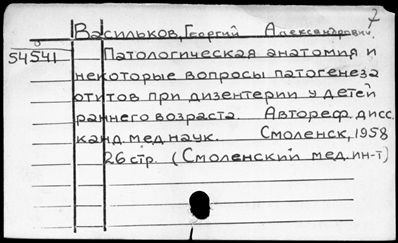 7
Васильков, Георгий Александрович.
54541
Патологическая анатомия и
некоторые вопросы патогенеза
отитов при дизентерии у детей
раннего возраста. Автореф. дисс.
канд. мед. наук. Смоленск, 1958
26 стр. (Смоленский мед. ин-т)